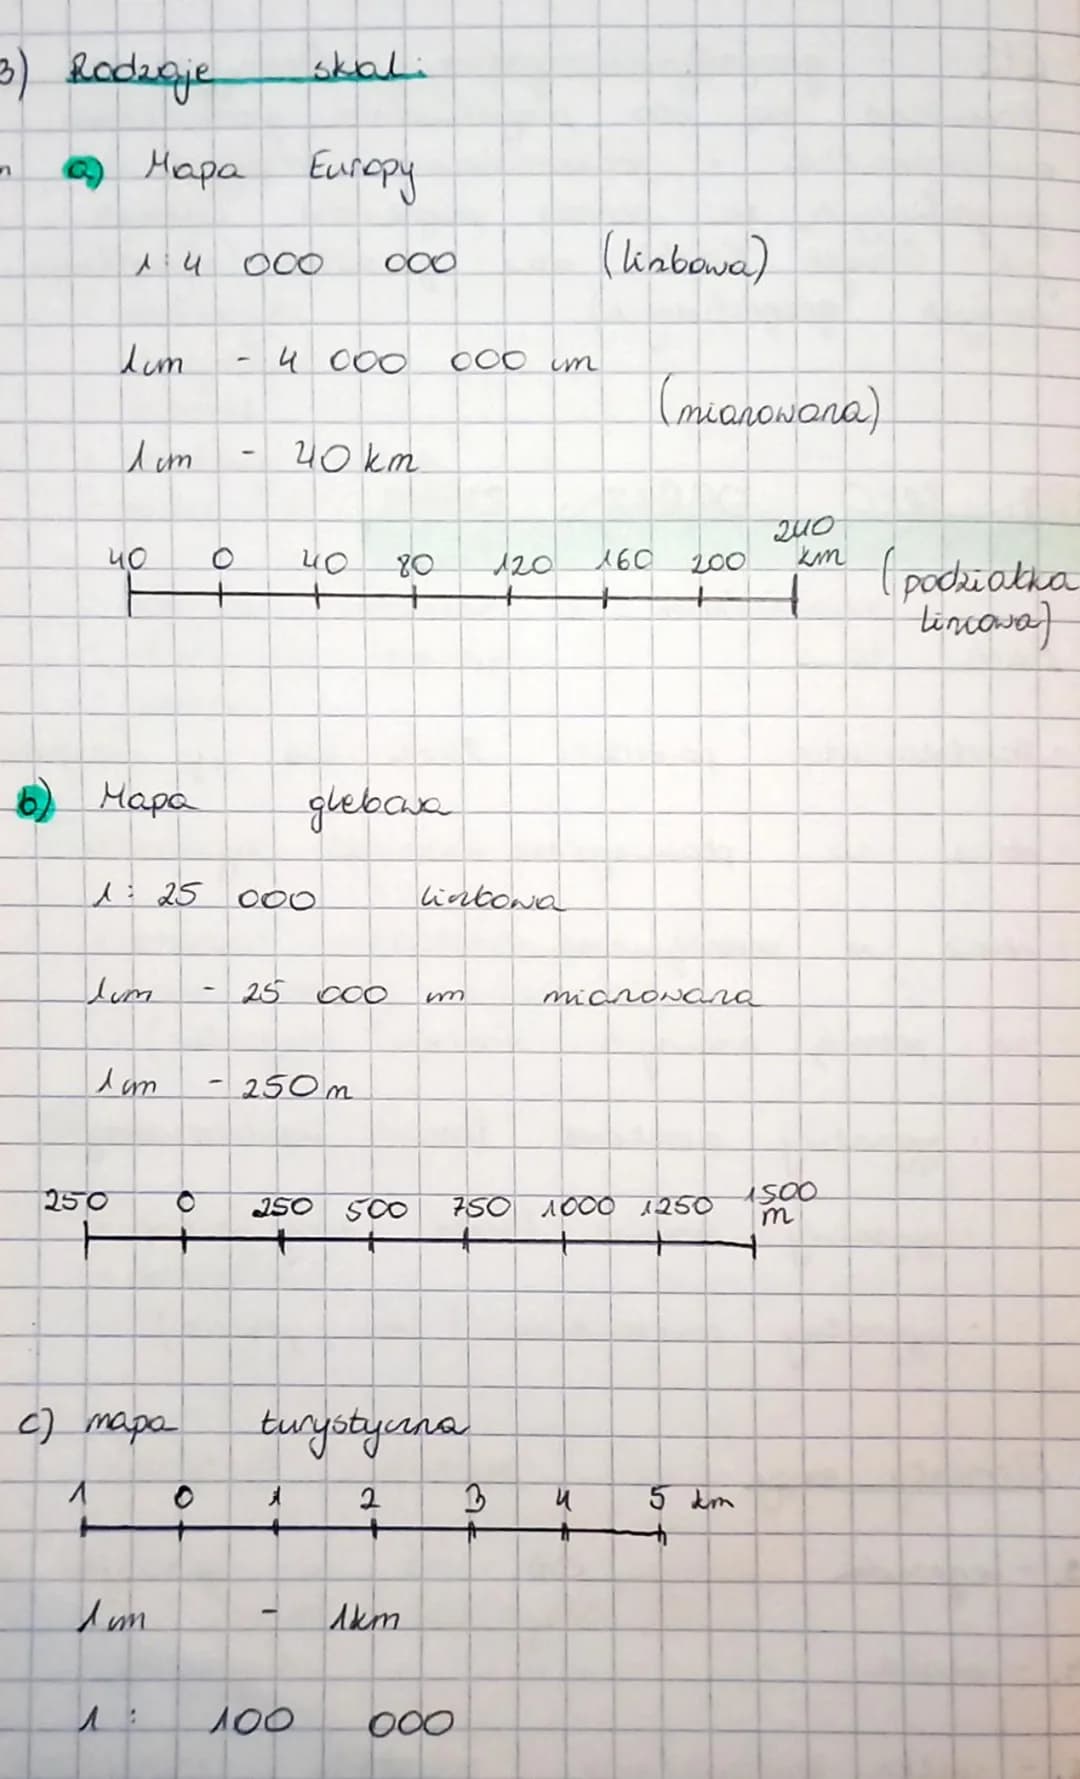 3) Rodzaje skali
a) Mapa Europy
1:4 000 000 (liczbowa)
1cm - 4 000 000 cm
(mianowana)
1cm - 40 km
40 0 40 80 120 160 200 240 km (podziałka liniowa)
b) Mapa glebowa
1: 25 000 liczbowa
1cm - 25 000 cm mianowana
1cm - 250 m
250 0 250 500 750 1000 1250 1500 m
c) mapa turystyczna
1 0 1 2 3 4 5 km
1cm - 1km
1: 100 000